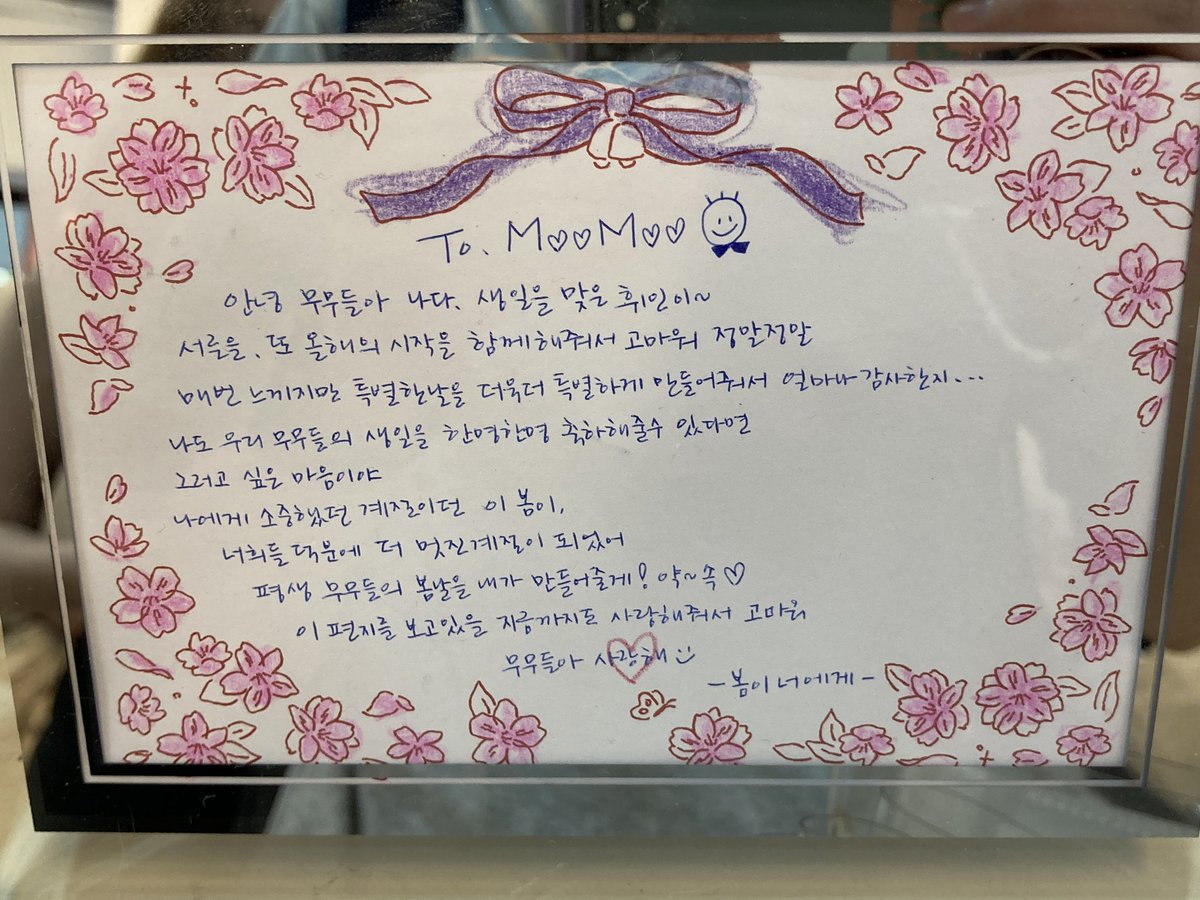 To. M♡♡M♡♡
안녕 무무들아 나다. 생일을 맞은 휘인이~
서른을, 또 올해의 시작을 함께해줘서 고마워 정말정말
매번 느끼지만 특별한날을 더욱더 특별하게 만들어줘서 얼마나 감사한지...
나도 우리 무무들의 생일을 한명한명 축하해줄수 있다면
그러고 싶은 마음이야
나에게 소중했던 계절이던 이 봄이,
너희들 덕분에 더 멋진계절이 되었어
평생 무무들의 봄날을 내가 만들어줄게! 약~속♡
이 편지를 보고있을 지금까지도 사랑해줘서 고마워
무무들아 사랑해
-봄이 너에게-